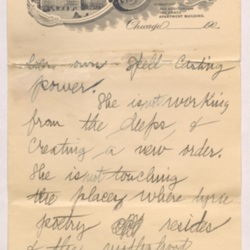 her own spell-casting
power.
She is not working
from the deeps, &
creating a new order.
She is not touching
the places where lyric
poetry resides
Chicago, 190
APARTMENT BUILDING.